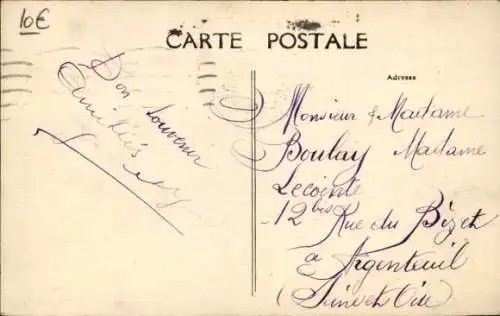 10€
CARTE POSTALE
Adresse
Bon souvenir
Amitiés
Monsieur & Madame
Boulay Madame
Lecointe
12 bis Rue du Bizet
à Argenteuil
(Seine et Oise)